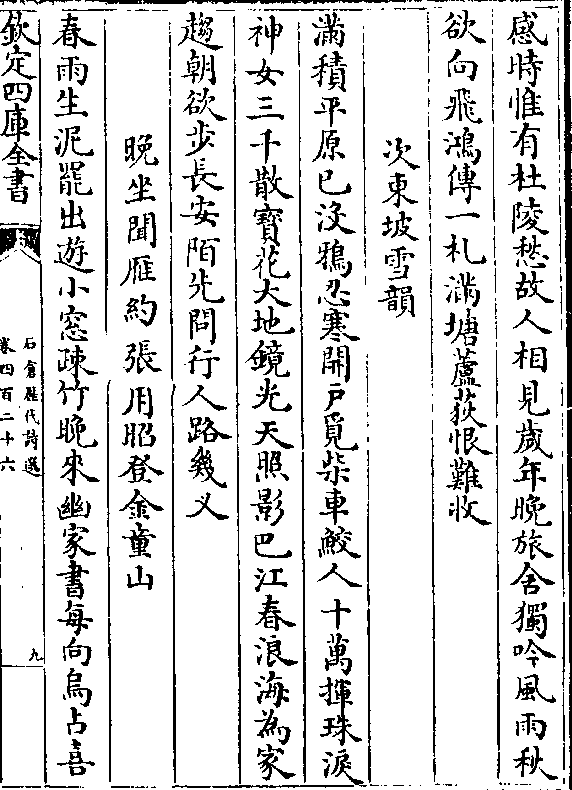 感時惟有杜陵愁故人相見歲年晚旅舍獨吟風雨秋
欲向飛鴻傳一札滿塘蘆荻恨難收
次東坡雪韻
滿積平原已沒鴉忍寒開戶覓柴車鮫人十萬揮珠淚
神女三千散寶花大地鏡光天照影巴江春浪海為家
趨朝欲步長安陌先問行人路幾义
晚坐聞雁約張用昭登金童山
春雨生泥罷出遊小窓疎竹晚來幽家書每向烏占喜
欽定四庫全書
石倉歷代詩選
卷四百二十六
九